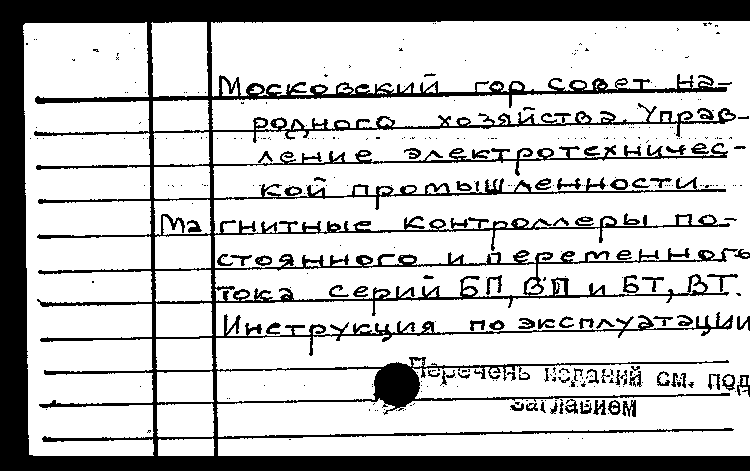 Московский гор. совет на-
родного хозяйства. Управ-
ление электротехничес-
кой промышленности.
Магнитные контроллеры по-
стоянного и переменного
тока серий БП, ВП и БТ, ВТ.
Инструкция по эксплуатации
Перечень изданий см. под
заглавием